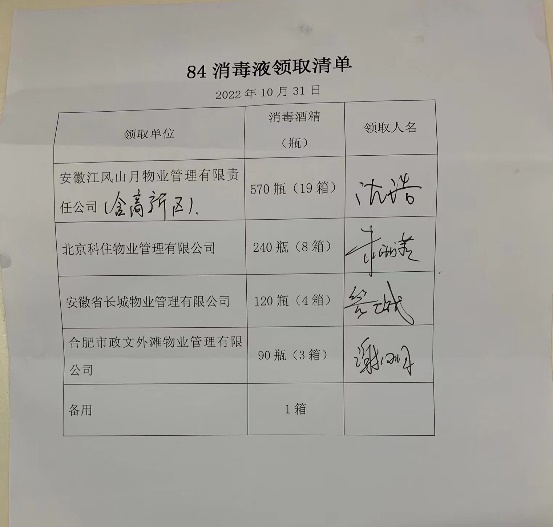 84 消毒液领取清单
2022 年 10 月 31 日
领取单位
消毒酒精
（瓶）
领取人名
安徽江风山月物业管理有限责
任公司（含高新区）.
570 瓶（19 箱）
沈浩
北京科住物业管理有限公司
240 瓶（8 箱）
安徽省长城物业管理有限公司
120 瓶（4 箱）
合肥市政文外滩物业管理有限
公司
90 瓶（3 箱）
备用
1 箱